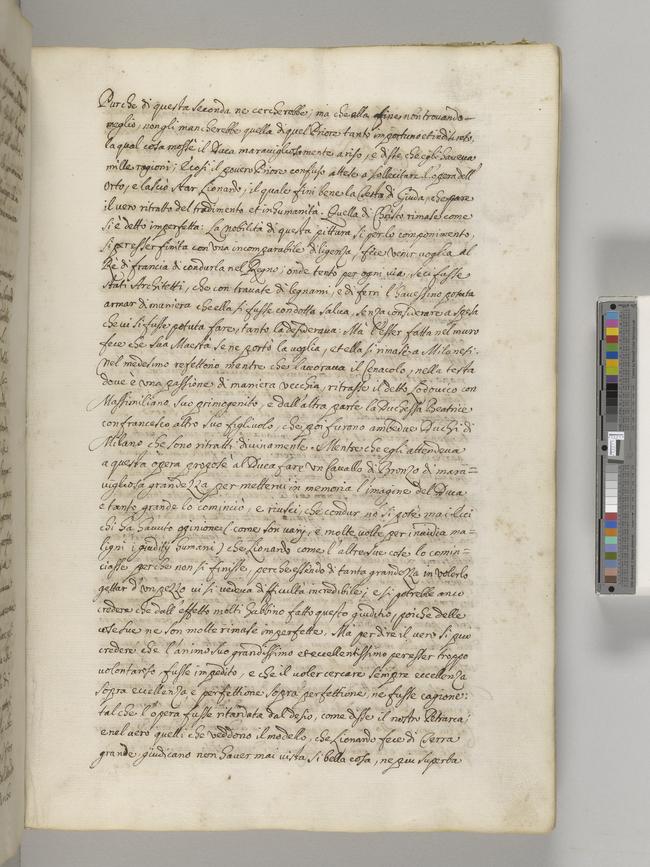 Pur che di questa seconda ne cercherebbe; ma che alla fine non trovando
meglio, non gli mancherebbe quella di quel Priore tanto importuno et indiscreto,
la qual cosa mosse il Duca maravigliosamente a riso, e disse che egli haveva
mille ragioni; E cosi il povero Priore confuso attese a sollecitare l'opera dell'
orto, e lasciò star Lionardo; il quale finì bene la testa di Giuda, che pare
il vero ritratto del tradimento et inhumanità. Quella di Christo rimase come
si è detto imperfetta: La nobiltà di questa pittura si per lo componimento,
si per esser finita con una incomparabile diligenza, fece venir voglia al
Rè di francia di condurla nel Regno; onde tentò per ogni via, se ci fusse
stati Architetti, che con travate di legnami, e di ferri l'havessino potuta
armar di maniera che ella si fusse condotta salva, senza considerare a spesa
che vi si fusse potuta fare, tanto la desiderava: Ma l'esser fatta nel muro
fece che sua Maestà se ne portò la voglia, et ella si rimase a Milanesi:
nel medesimo refettorio mentre che lavorava il Cenacolo, nella testa
dove è una passione di maniera vecchia, ritrasse il detto Lodovico con
Massimiliano suo primogenito, e dall'altra parte la Duchessa Beatrice
con francesco altro suo figliuolo, che poi furono ambedue Duchi di
Milano che sono ritratti divinamente. Mentre che egli attendeva
a questa opera propose al Duca fare un Cavallo di Bronzo di mara=
vigliosa grandezza per mettervi in memoria l'imagine del Duca
e tanto grande lo cominciò, e riuscì, che condur no si potè mai. Ecci
chi ha havuto oppinione (come son varij, e molte volte per invidia ma=
ligni i giuditij humani) che Lionardo come l'altre sue cose lo comin=
ciasse perche non si finisse, perche essendo di tanta grandezza in volerlo
gettar d'un pezzo vi si vedeva difficultà incredibile; e si potrebbe anco
credere che dall'effetto molti habbino fatto questo giuditio, poiche delle
cose sue ne son molte rimase imperfette. Ma per dire il vero si può
credere che l'animo suo grandissimo et eccellentissimo per esser troppo
volontaroso fusse impedito, e che il voler cercare sempre eccellenza
sopra eccellenza e perfettione sopra perfettione, ne fusse cagione:
tal che l'opera fusse ritardata dal desio, come disse il nostro Petrarca;
e nel vero quelli che veddono il modello, che Lionardo fece di Terra
grande, giudicano non haver mai vista si bella cosa, ne piu superba